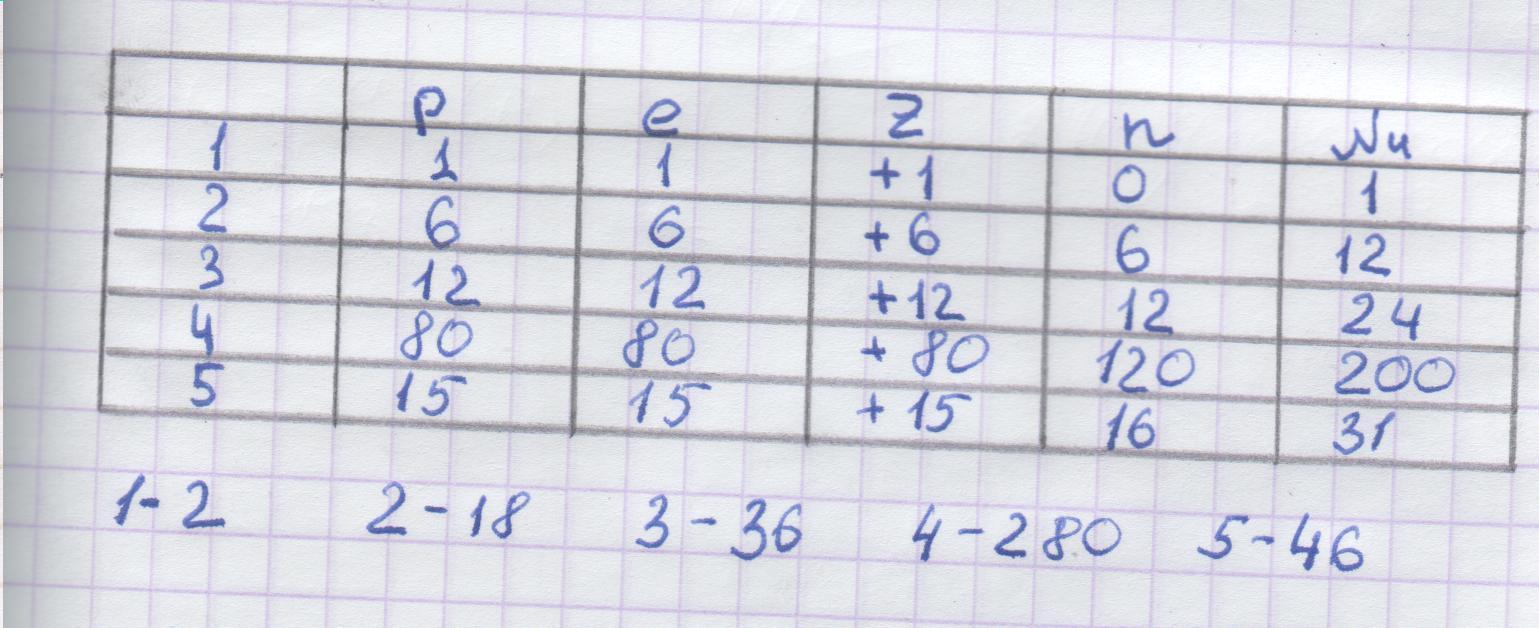 p e Z n Nu
1 1 1 +1 0 1
2 6 6 +6 6 12
3 12 12 +12 12 24
4 80 80 +80 120 200
5 15 15 +15 16 31
1-2 2-18 3-36 4-280 5-46